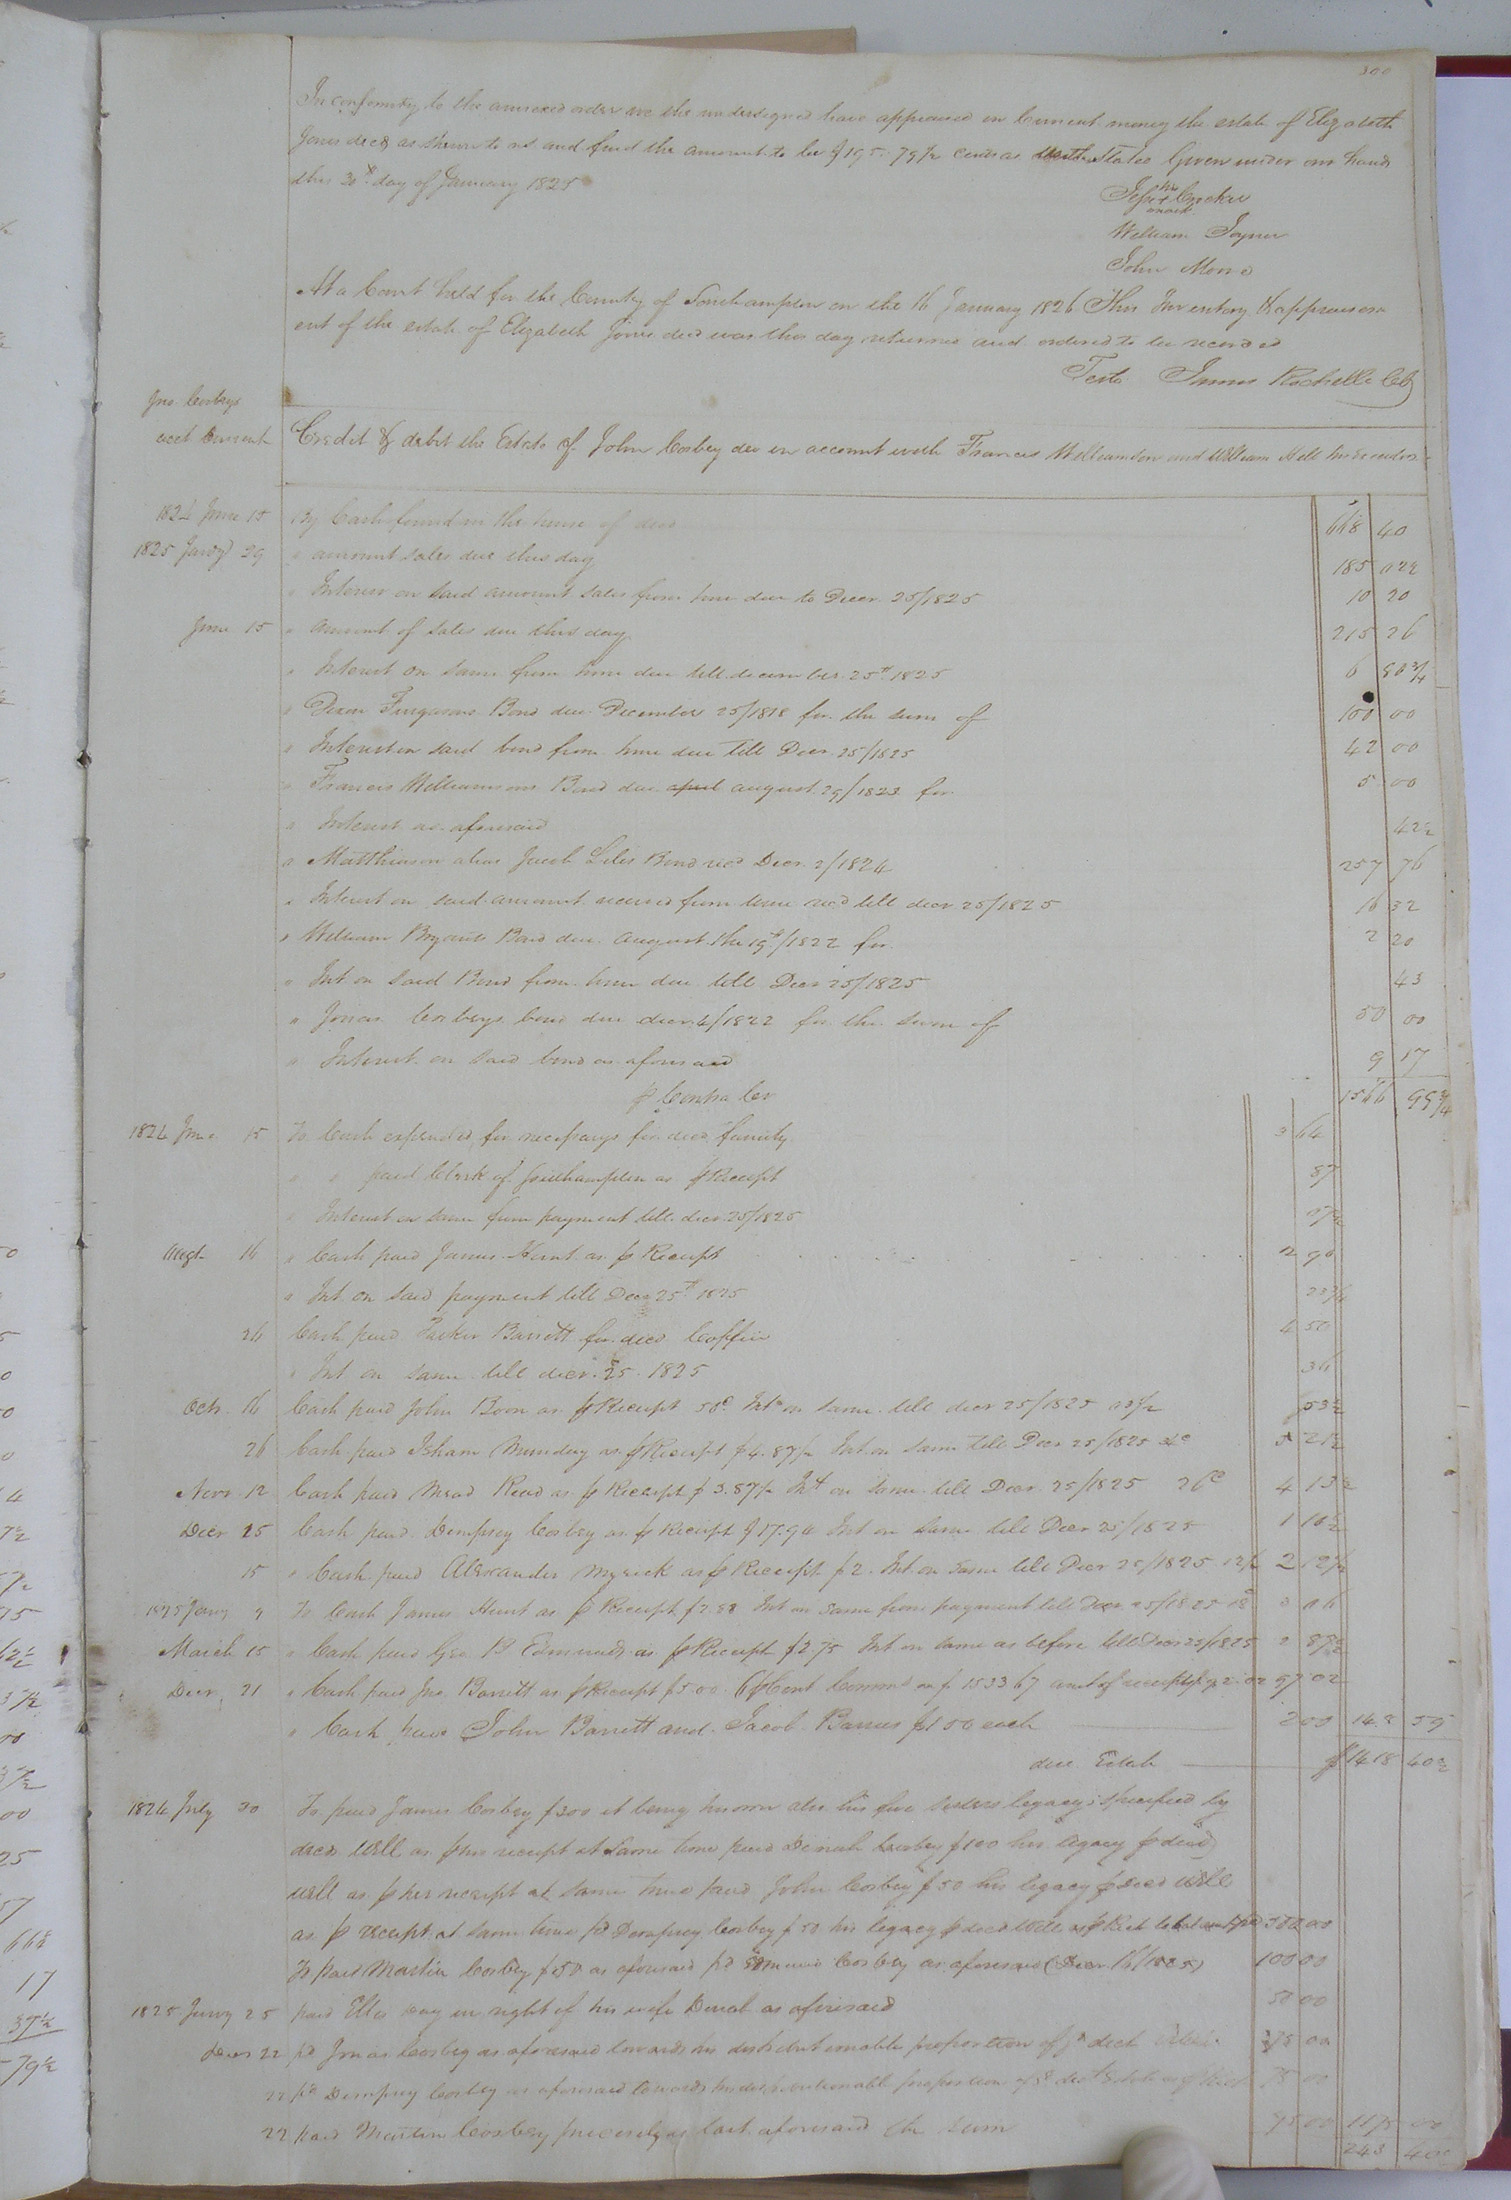 300
In conformity to the annexed order we the undersigned have appraised in Current money the estate of Elizabeth
Jones decd as shewn to us and find the amount to be $195.79½ cents as States Given under our hands
this 30th day of January 1825
his
Jesse + Crocker
mark
William Joyner
John Moore
At a Court held for the County of Southampton on the 16 January 1826 This Inventory & appraisem
ent of the estate of Elizabeth Jones decd was this day returned and ordered to be recorded
Teste James Rochelle Clk
Jno Cosbys
acct Current
Credit & debit the Estate of John Cosbey dec in account with Francis Williamson and William Hill his Executors
1824 June 15 By Cash found in the house of decd 668 40
1825 Jany 29 " amount sales due this day 185 02½
" Interest on said amount sales from time due to Decr 25/1825 10 20
June 15 " amount of sales due this day 215 26
" Interest on same from time due till december 25th 1825 6 80¾
" Dixon Fergasons Bond due December 25/1818 for the sum of 100 00
" Interest on said bond from time due till Decr 25/1825 42 00
" Francis Williamsons Bond due april august 29/1823 for 5 00
" Interest as aforesaid 42½
" Matthewson alias Jacob Liles Bond recd Decr 2/1824 257 76
" Interest on said amount received from time recd till decr 25/1825 16 32
" William Bryants Bond due august the 19th/1822 for 2 20
" Int on said Bond from time due till Decr 25/1825 43
" Jonas Cosbeys bond due decr 6/1822 for the sum of 50 00
" Interest on said bond as aforesaid 9 17
p Contra Cr 1566 99¾
1824 June 15 To Cash expended for necessarys for decd family 3 64
" " paid Clerk of Southampton as p Receipt 87
" Interest on same from payment till decr 25/1825
Augt 16 " Cash paid James Hunt as p Receipt 2 90
" Int on said payment till Decr 25th 1825
26 Cash paid Parker Barrett for decd Coffin 4 50
" Int on same till decr 25 1825 36
Octr 16 Cash paid John Boon as p Receipt 50c Int on same till decr 25/1825 03½ 53½
26 Cash paid Isham Munday as p Receipt $4.87½ Int on same till Decr 25/1825 34c 5 21½
Novr 12 Cash paid Mead Reed as p Receipt $3.87½ Int on same till Decr 25/1825 26c 4 13½
Decr 25 Cash paid Dempsey Cosbey as p Receipt $17.94 Int on same till Decr 25/1825
15 " Cash paid Alexander Myrick as p Receipt $2. Int on same till Decr 25/1825 12½ 2 12½
1825 Jany 9 To Cash James Hunt as p Receipt $2.88 Int on same from payment till Decr 25/1825 18c 3 06
March 15 " Cash paid Geo B Edmunds as p Receipt $2.75 Int on same as before till Decr 25/1825 2 87½
Decr 21 " Cash paid Jno Barrett as p Receipt $5.00 6 p Cent Commn on $1533 67 amt of receipts $92.02 97 02
" Cash paid John Barrett and Jacob Barnes $1 00 each 2 00 148 59
due Estate $1418 40½
1824 July 30 To paid James Cosbey $300 it being his own also his five sisters legacy specified by
decd Will as p his receipt at same time paid Dinah Cosbey $100 her legacy p decd
will as p her receipt at same time paid John Cosbey $50 his legacy p decd Will
as p receipt at same time pd Dempsey Cosbey $50 his legacy p decd Will as p Rect 500 00
To paid Martin Cosbey $50 as aforesaid pd Edmund Cosbey as aforesaid (Decr 16/1825) 100 00
1825 Jany 25 paid Elles in right of his wife Dinah as aforesaid 50 00
Decr 22 pd Jonas Cosbey as aforesaid towards his distributionable proportion of sd decd Estate 375 00
22 pd Dempsey Cosbey as aforesaid towards his distributionable proportion of sd decd Estate as p Rect 75 00
22 paid Martin Cosbey precisely as last aforesaid the sum 75 00 1175 00
243 40½